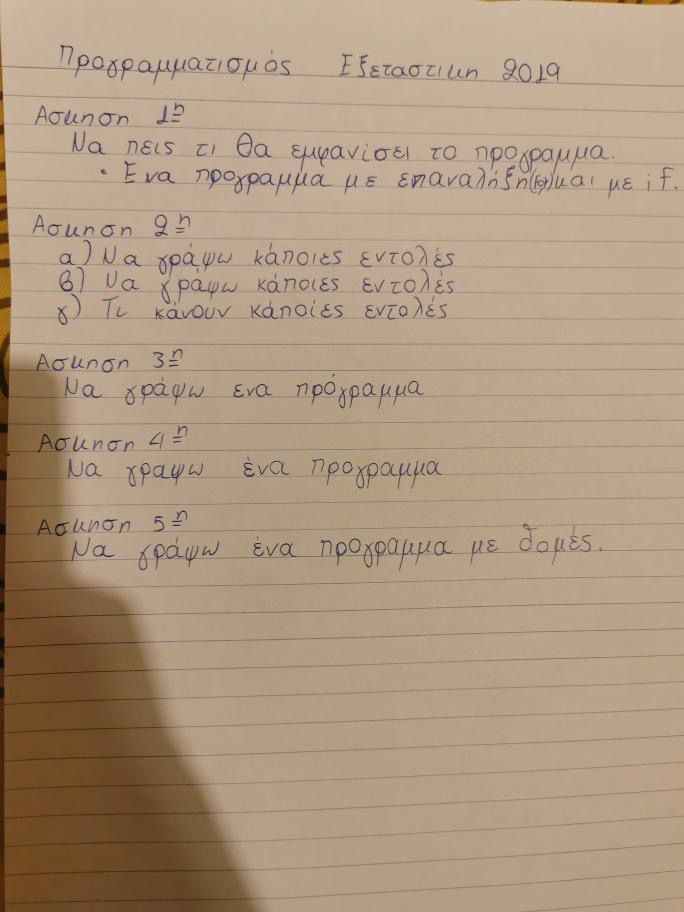 Προγραμματισμός Εξεταστικη 2019
Ασκηση 1η
Να πεις τι θα εμφανίσει το προγραμμα.
• Ενα προγραμμα με επαναλήξη(for)και με if.
Ασκηση 2η
α) Να γράψω κάποιες εντολές
β) Να γράψω κάποιες εντολές
γ) Τι κάνουν κάποίες εντολές
Ασκηση 3η
Να γράψω ενα πρόγραμμα
Ασκηση 4η
Να γραψω ένα προγραμμα
Ασκηση 5η
Να γράψω ένα προγραμμα με δομές.